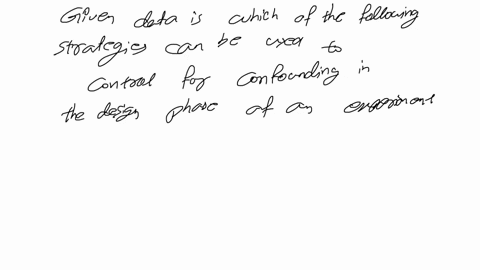 Given data is which of the following
strategies can be used to
control for confounding in
the design phase of an experiment